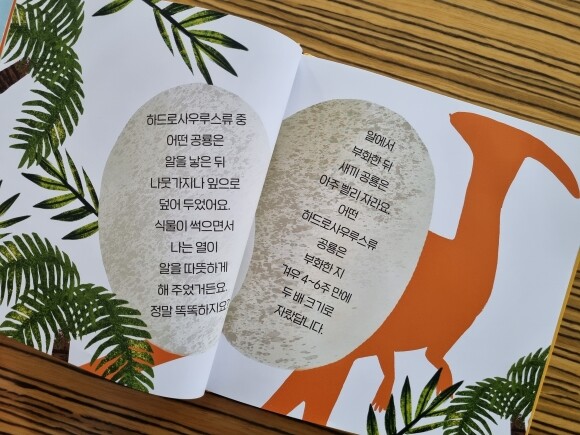 하드로사우루스류 중
어떤 공룡은
알을 낳은 뒤
나뭇가지나 잎으로
덮어 두었어요.
식물이 썩으면서
나는 열이
알을 따뜻하게
해 주었거든요.
정말 똑똑하지요?
알에서
부화한 뒤
새끼 공룡은
아주 빨리 자라요.
어떤
하드로사우루스류
공룡은
부화한 지
겨우 4~6주 만에
두 배 크기로
자랐답니다.